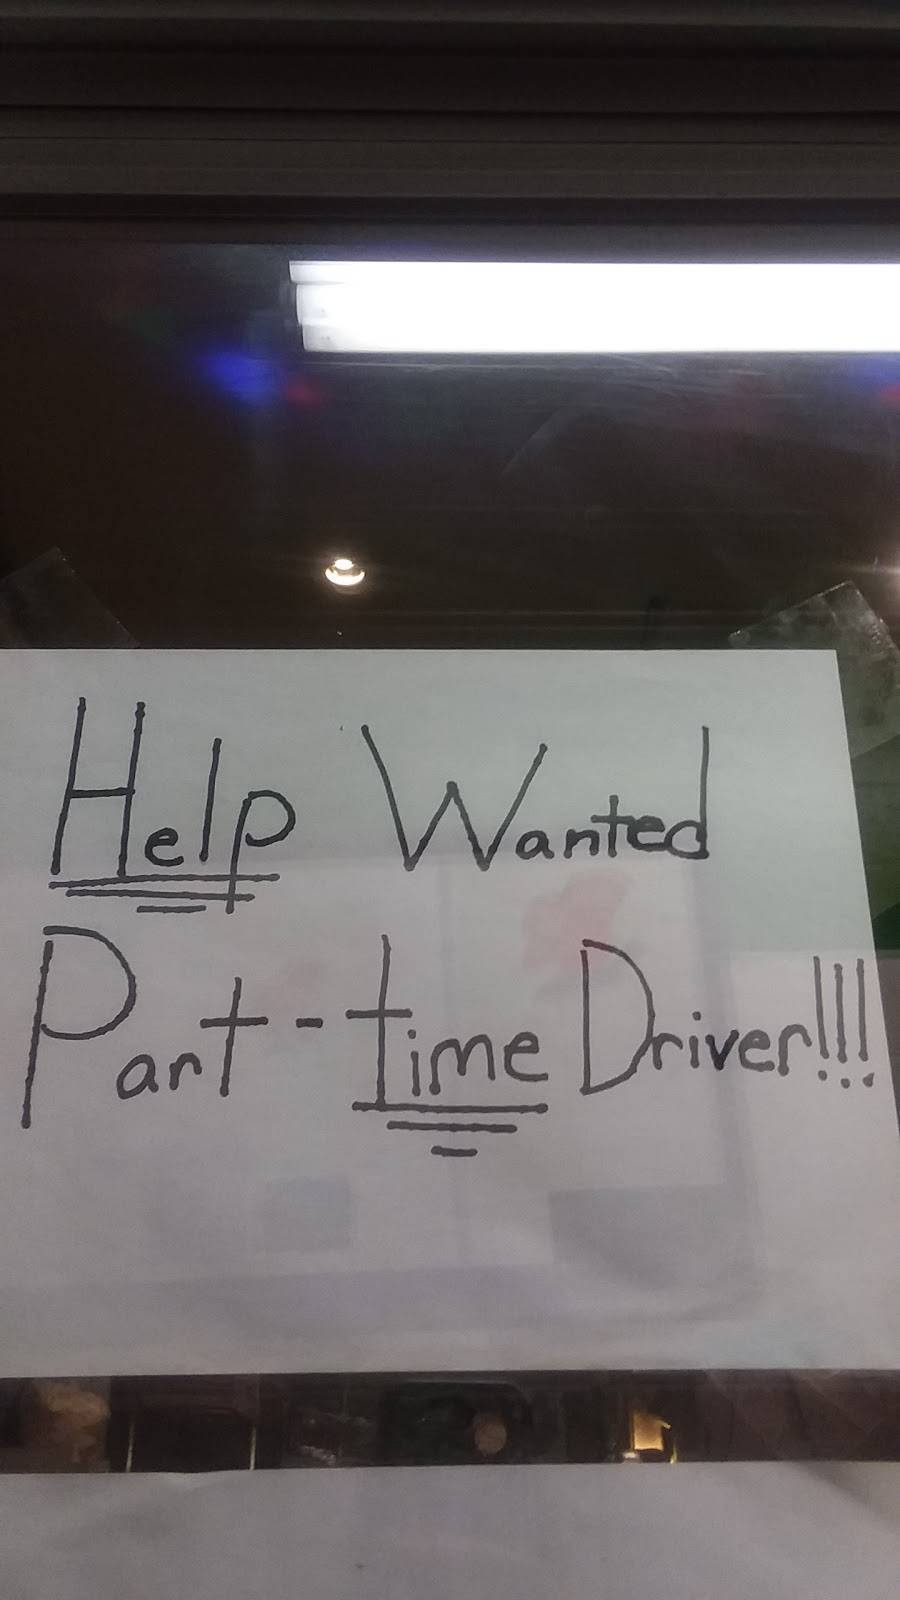 Help Wanted
Part-time Driver!!!